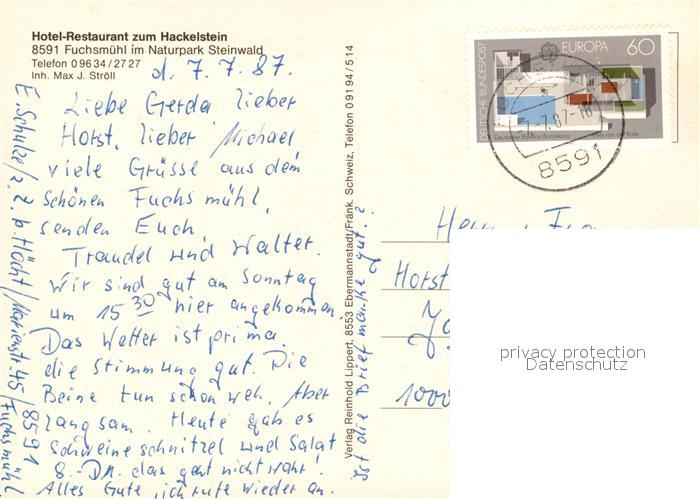 Hotel-Restaurant zum Hackelstein
8591 Fuchsmühl im Naturpark Steinwald
Telefon 0 96 34 / 27 27
Inh. Max J. Ströll
d. 7.7.87.
Liebe Gerda lieber
Horst, lieber Michael
viele Grüsse aus dem
Schönen Fuchsmühl,
senden Euch
Traudel und Walter.
Wir sind gut am Sonntag
um 15 30 hier angekommen.
Das Wetter ist prima
die Stimmung gut. Die
Beine tun schon weh. Aber
langsam. Heute gab es
Schweineschnitzel und Salat
8.-DM. das geht nicht wahr!
Alles Gute, ich rufe wieder an.
E. Schulze / z.Z. b. Höcht / Marienstr. 45 / 8591
Fuchsmühl
Verlag Reinhold Lippert, 8553 Ebermannstadt/Fränk. Schweiz, Telefon 0 91 94 / 5 14
Ist die Briefmarke gut?
DEUTSCHE BUNDESPOST
EUROPA 60
Deutscher Pavillon Barcelona
Mies van der Rohe
7.7.87-18
8591
Herrn u. Frau
Horst
1000
privacy protection
Datenschutz